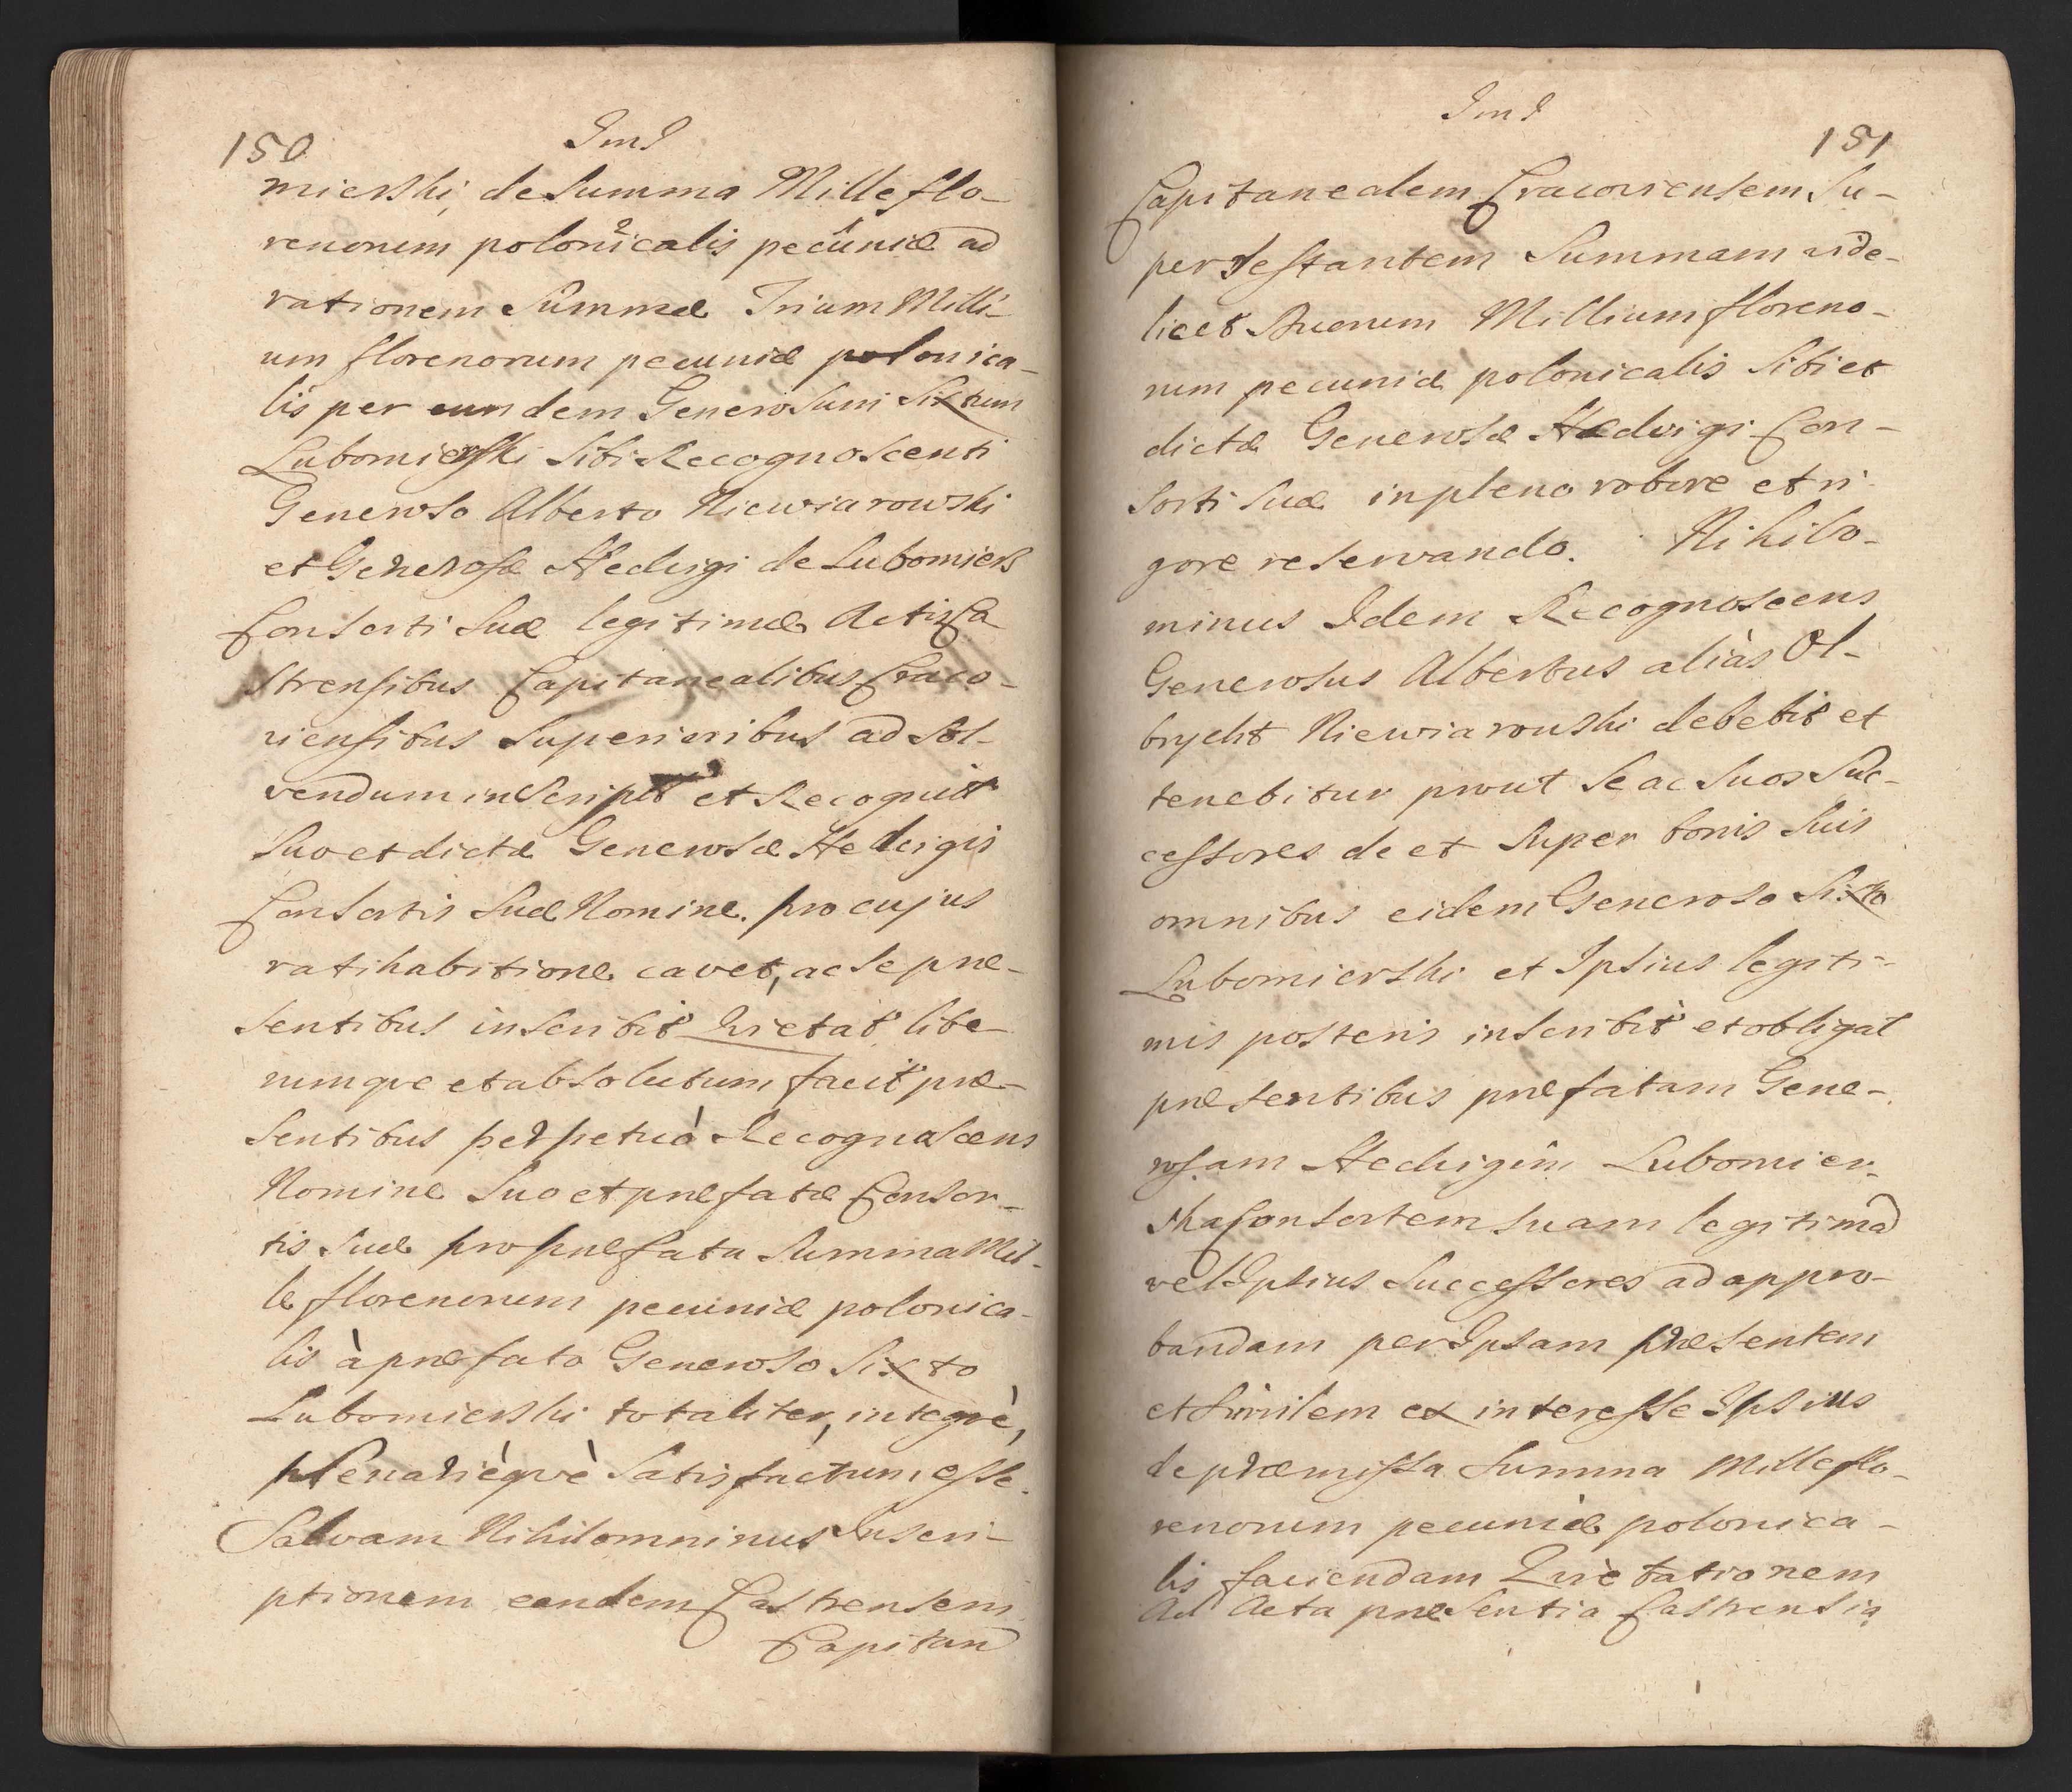 150
ImJ
mierski, de Summa Mille flo-
renorum polonicalis pecuniæ ad
rationem Summæ Trium Milli-
um florenorum pecuniæ polonica-
lis per eundem Generosum Sixtum
Lubomierski Sibi Recognoscenti
Generoso Alberto Niewiarowski
et Generosæ Hedvigi de Lubomierz
Consorti Suæ legitimæ Actis Ca
strensibus Capitanealibus Craco-
viensibus Superioribus ad Sol-
vendum inscripta et Recognit
Suo et dictæ Generosæ Hedvigis
Consortis Suæ Nomine. pro cujus
ratihabitione cavet, ac Se præ-
sentibus inscribit Quietat libe-
rumque et absolutum facit præ-
sentibus perpetuò Recognoscens
Nomine Suo et præfatæ Consor-
tis Suæ pro præfata Summa Mil-
le florenorum pecuniæ polonica-
lis à præfato Generoso Sixto
Lubomierski totaliter, integrè,
plenariéqvè Satisfactum esse.
Salvam Nihilominus Inscri-
ptionem eandem Castrensem
Capitan
ImJ
151
Capitanealem Cracoviensem Su-
per restantem Summam vide-
licet Duorum Millium floreno-
rum pecuniæ polonicalis Sibi et
dictæ Generosæ Hædvigi Con-
sorti Suæ in pleno robore et ri-
gore reservando. Nihilo-
minus Idem Recognoscens
Generosus Albertus aliàs Ol-
brycht Niewiarowski debebit et
tenebitur prout Se ac Suos Suc-
cessores de et Super bonis Suis
omnibus eidem Generoso Sixto
Lubomierski et Ipsius legiti-
mis posteris inscribit et obligat
præsentibus præfatam Gene-
rosam Hedvigim Lubomier-
ska Consortem suam legitimã
vel Ipsius Successores ad appro-
bandam per Ipsam præsentem
et Similem ex interesse Ipsius
de præmissa Summa Mille flo-
renorum pecuniæ polonica-
lis faciendam Quietationem
Ad Acta præsentia Castrensia